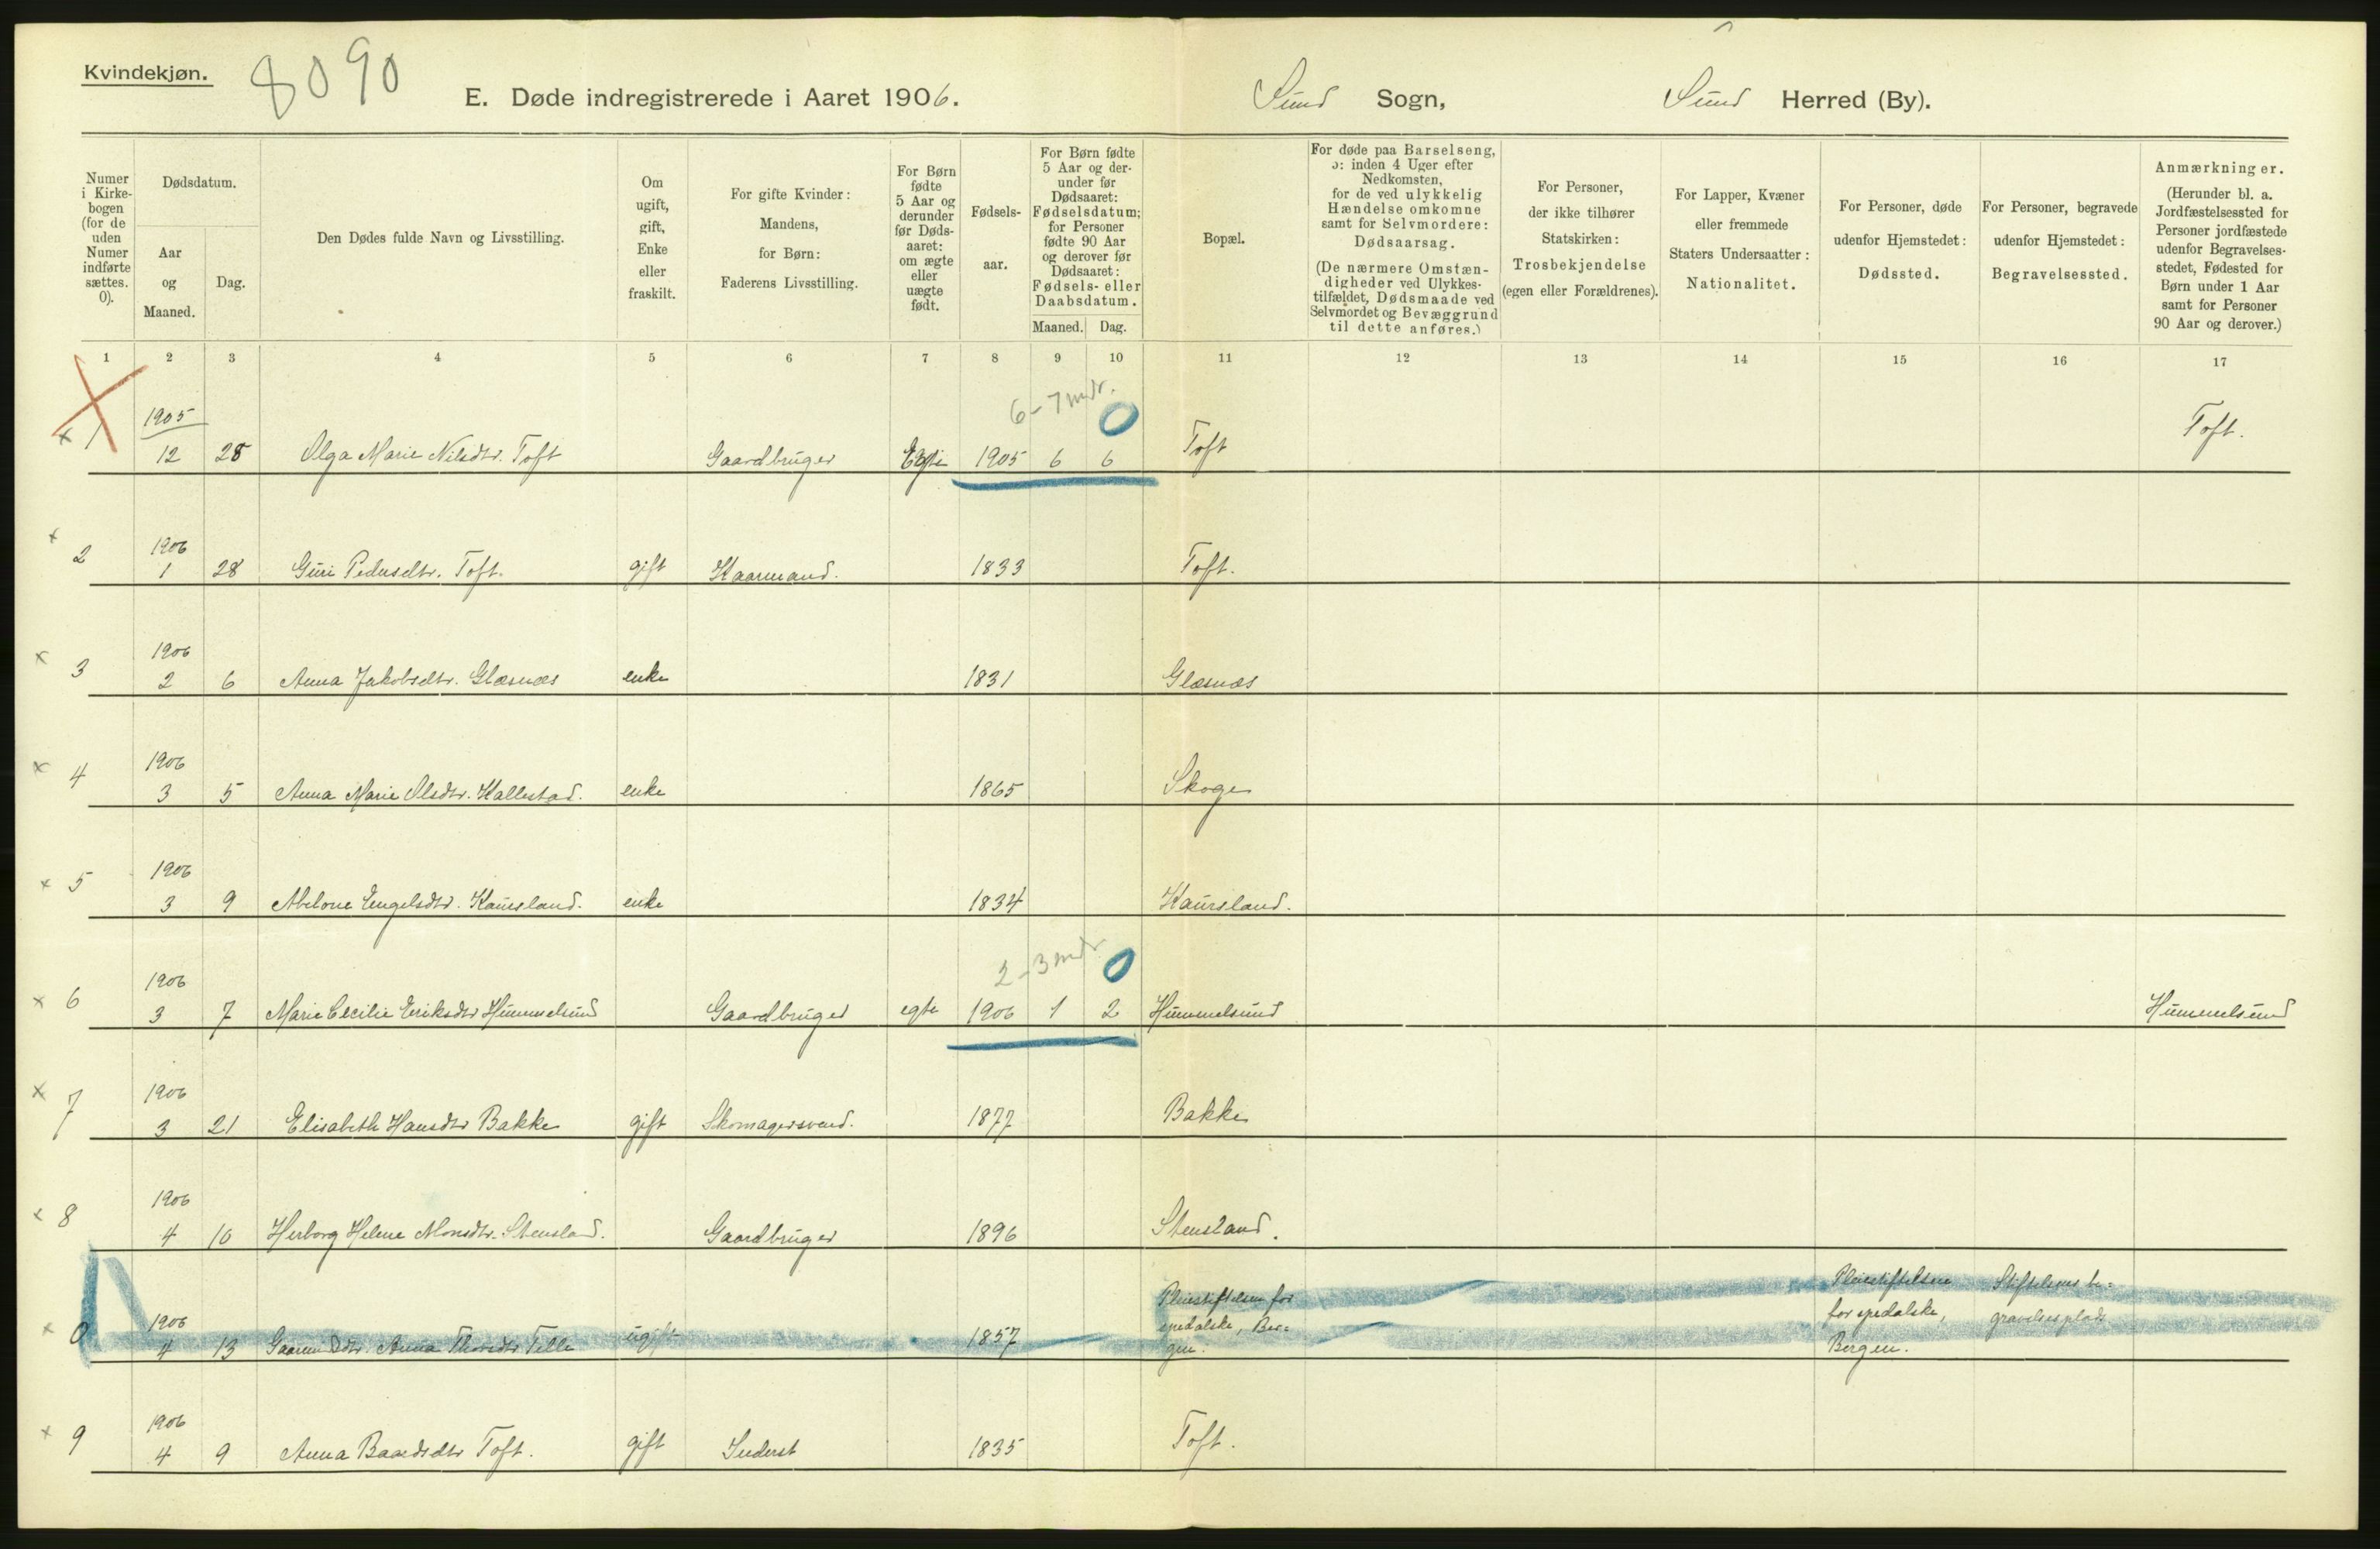 Kvindekjøn.
8090
E. Døde indregistrerede i Aaret 1906.
Sund Sogn,
Sund Herred (By).
Numer i Kirke-bogen (for de uden Numer indførte sættes. 0).
Dødsdatum.
Aar og Maaned.
Dag.
Den Dødes fulde Navn og Livsstilling.
Om ugift, gift, Enke eller fraskilt.
For gifte Kvinder: Mandens, for Børn: Faderens Livsstilling.
For Børn fødte 5 Aar og derunder før Døds-aaret: om ægte eller uægte født.
Fødsels-aar.
For Børn fødte 5 Aar og der-under før Dødsaaret: Fødselsdatum; for Personer fødte 90 Aar og derover før Dødsaaret: Fødsels- eller Daabsdatum.
Maaned. Dag.
Bopæl.
For døde paa Barselseng, ɔ: inden 4 Uger efter Nedkomsten, for de ved ulykkelig Hændelse omkomne samt for Selvmordere: Dødsaarsag.
(De nærmere Omstæn-digheder ved Ulykkes-tilfældet, Dødsmaade ved Selvmordet og Bevæggrund til dette anføres.)
For Personer, der ikke tilhører Statskirken: Trosbekjendelse (egen eller Forældrenes).
For Lapper, Kvæner eller fremmede Staters Undersaatter: Nationalitet.
For Personer, døde udenfor Hjemstedet: Dødssted.
For Personer, begravede udenfor Hjemstedet: Begravelsessted.
Anmærkninger.
(Herunder bl. a. Jordfæstelsessted for Personer jordfæstede udenfor Begravelses-stedet, Fødested for Børn under 1 Aar samt for Personer 90 Aar og derover.)
1 2 3 4 5 6 7 8 9 10 11 12 13 14 15 16 17
6-7 mdr. 0
x 1 1905 12 28 Olga Marie Nilsdtr. Toft Gaardbruger Egte 1905 6 6 Toft Toft.
x 2 1906 1 28 Guri Pedersdtr. Toft. gift Kaarmand. 1833 Toft.
x 3 1906 2 6 Anna Jakobsdtr. Glæsnæs enke 1831 Glæsnæs
x 4 1906 3 5 Anna Marie Olsdtr. Kallestad. enke 1865 Skoge
x 5 1906 3 9 Abelone Engelsdtr. Kaursland. enke 1834 Kaursland.
2-3 mdr. 0
x 6 1906 3 7 Marie Cecilie Eriksdtr Hummelsund Gaardbruger egte 1906 1 2 Hummelsund Hummelsund
x 7 1906 3 21 Elisabeth Hansdtr Bakke gift Skomagersvend. 1877 Bakke
x 8 1906 4 10 Herborg Helene Monsdtr. Stensland. Gaardbruger 1896 Stensland.
x 0 1906 4 13 Anna Telle ugift 1857 Pleiestiftelsen for spedalske, Ber=gen. Pleiestiftelsen for spedalske, Bergen. Stiftelsens be=gravelsesplads
x 9 1906 4 9 Anna Baardsdtr Toft. gift Inderst 1835 Toft.